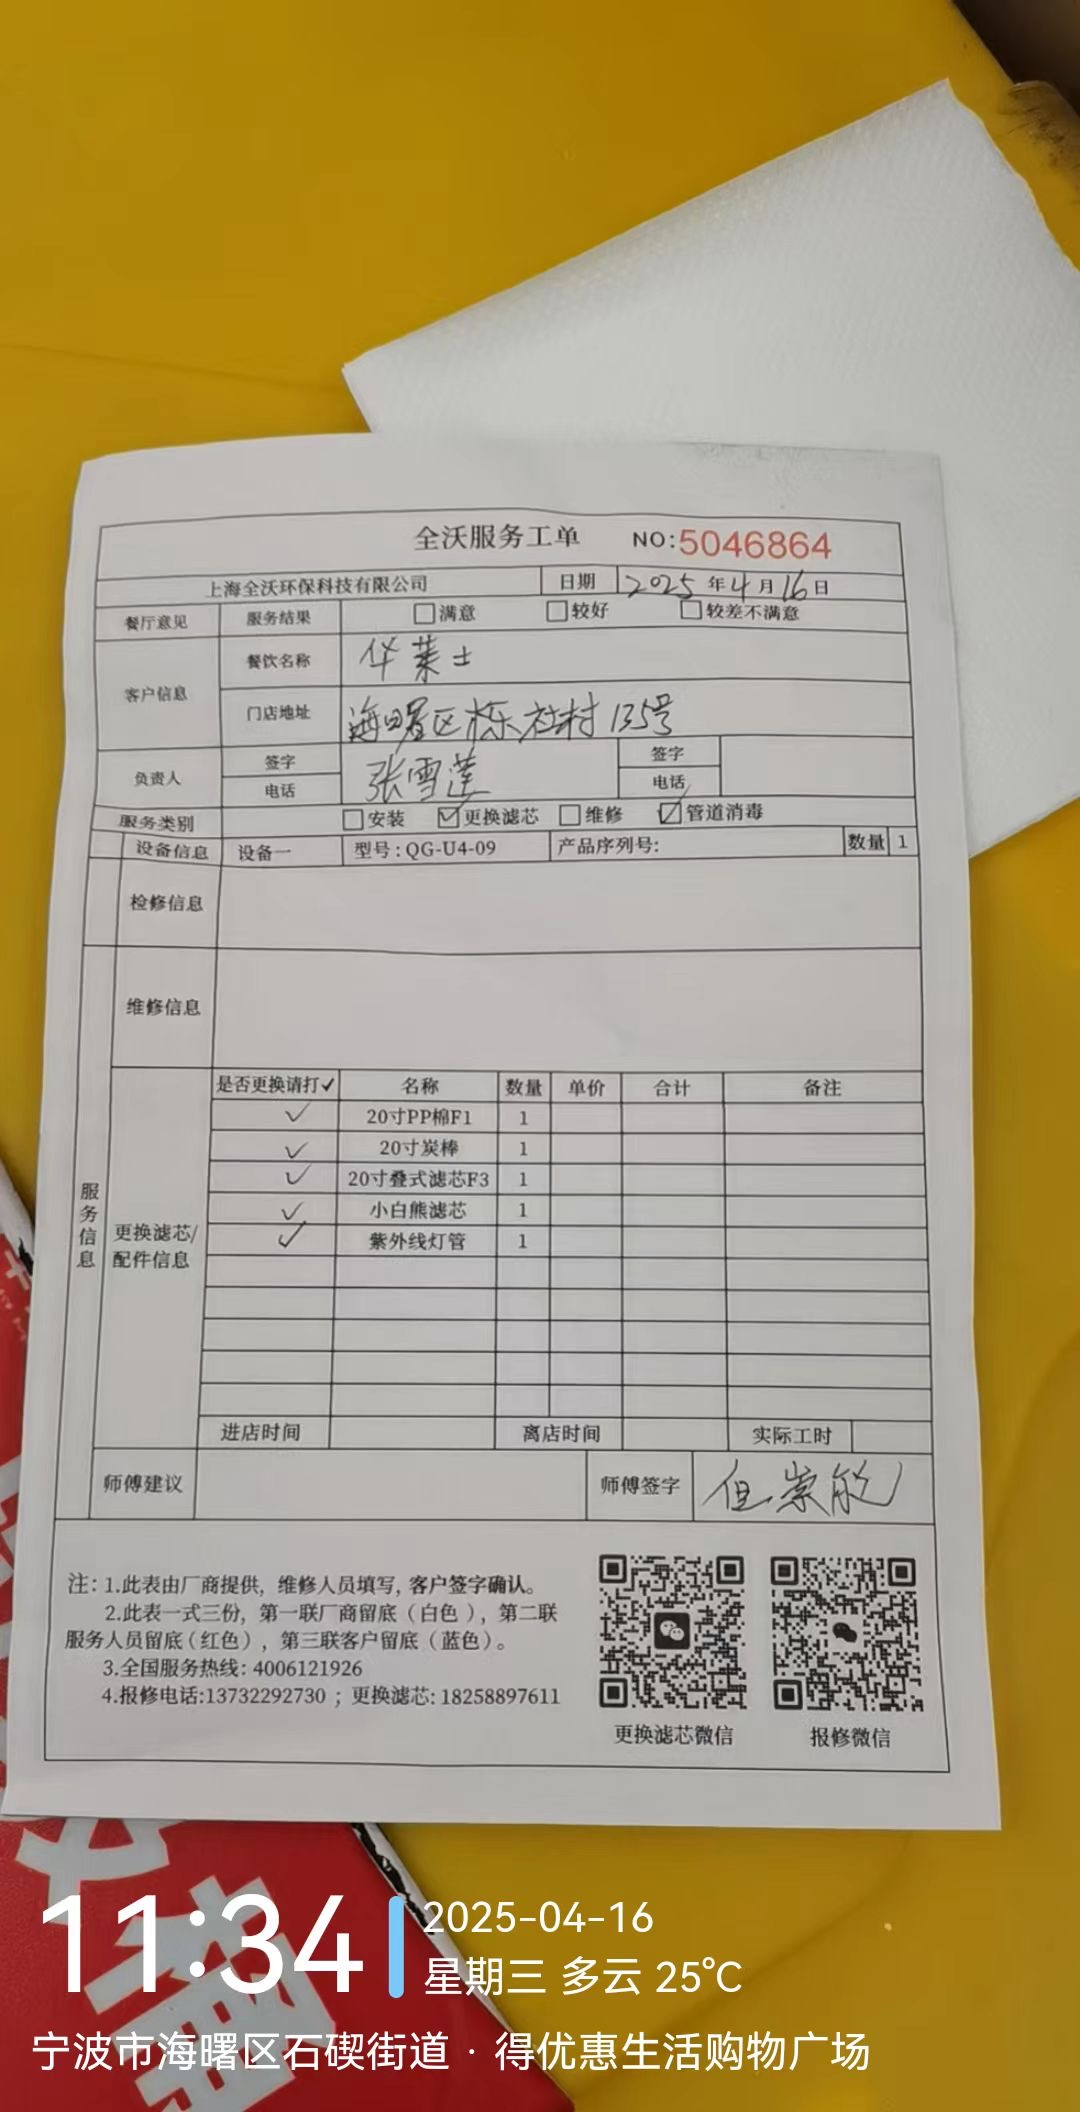 全沃服务工单 NO:5046864
上海全沃环保科技有限公司 日期 2025年4月16日
餐厅意见 服务结果 □满意 □较好 □较差不满意
客户信息 餐饮名称 华莱士
门店地址 海曙区栎社村135号
负责人 签字 张雪莲 签字
电话 电话
服务类别 □安装 ☑更换滤芯 □维修 ☑管道消毒
设备信息 设备一 型号:QG-U4-09 产品序列号: 数量 1
检修信息
维修信息
服务信息
更换滤芯/配件信息
是否更换请打✓ 名称 数量 单价 合计 备注
✓ 20寸PP棉F1 1
✓ 20寸炭棒 1
✓ 20寸叠式滤芯F3 1
✓ 小白熊滤芯 1
✓ 紫外线灯管 1
进店时间 离店时间 实际工时
师傅建议 师傅签字
注: 1.此表由厂商提供, 维修人员填写, 客户签字确认。
2.此表一式三份, 第一联厂商留底(白色), 第二联
服务人员留底(红色), 第三联客户留底(蓝色)。
3.全国服务热线: 4006121926
4.报修电话:13732292730 ; 更换滤芯: 18258897611
更换滤芯微信 报修微信
11:34
2025-04-16
星期三 多云 25℃
宁波市海曙区石碶街道 · 得优惠生活购物广场